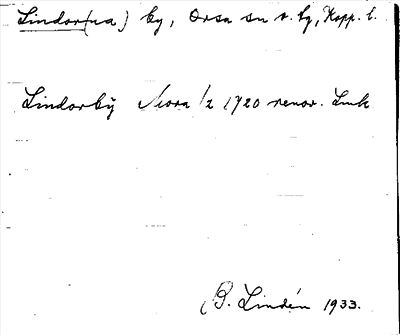 Lindor(na) by, Orsa sn o. tg, Kopp. l.
Lindorbÿ Mora 1/2 1720 renov. Lmk
B. Lindén 1933.